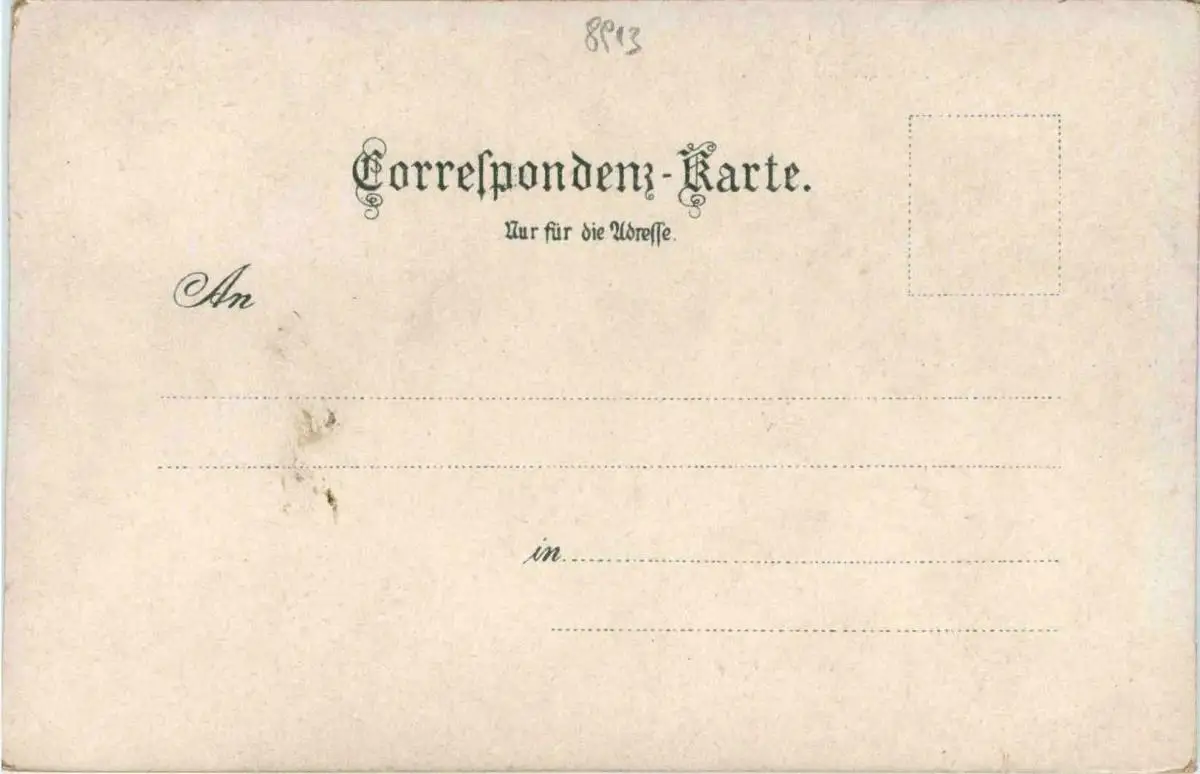 8913
Correspondenz-Karte.
Nur für die Adresse.
An
in